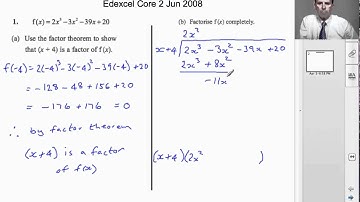 Edexcel Core 2 Jun 2008
1. f(x) = 2x³ − 3x² − 39x + 20
(a) Use the factor theorem to show
that (x + 4) is a factor of f(x).
f(-4) = 2(-4)³ - 3(-4)² - 39(-4) + 20
= -128 - 48 + 156 + 20
= -176 + 176 = 0
∴ by factor theorem
(x+4) is a factor
of f(x)
(b) Factorise f(x) completely.
2x²
x+4 2x³ - 3x² - 39x + 20
2x³ + 8x²
-11x
(x+4)(2x² )